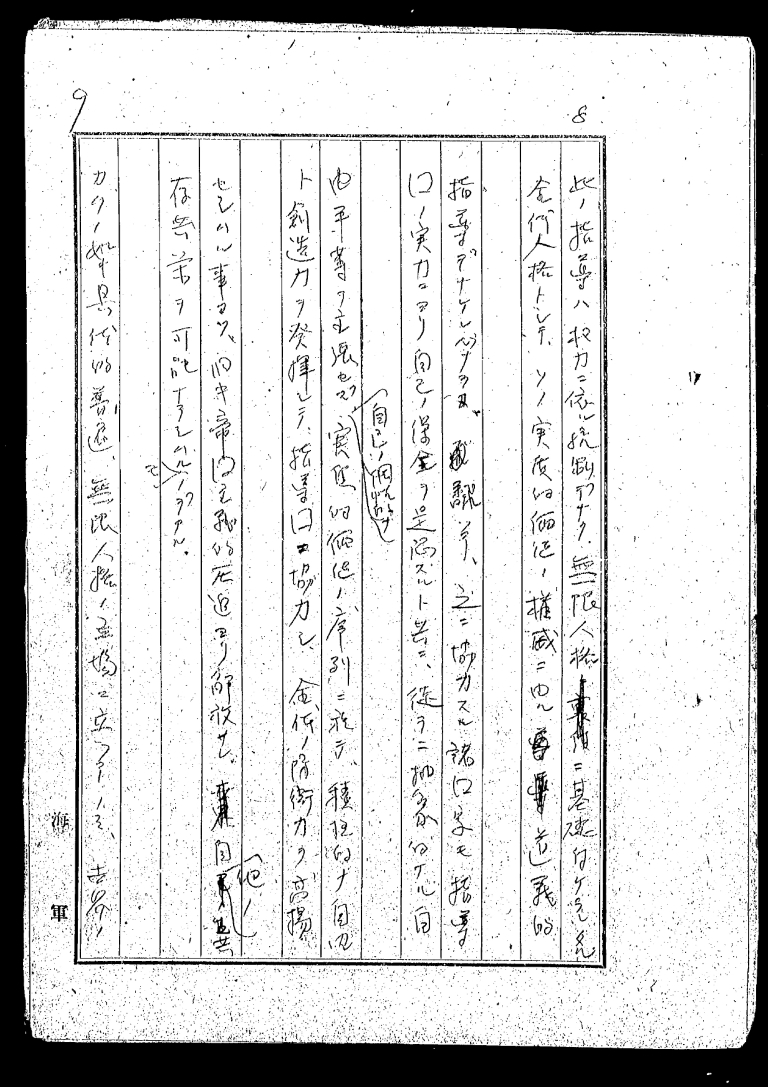 8
此ノ指導ハ权力ニ依ル統制デナク、無限人格ニ基礎付ケラレ
全代人格トシテ、ソノ実質的価値ノ権威ニ由ル道義的
指導デナケレバナラヌ。之ニ協力スル諸口家モ指導
口ノ実力ニヨリ自己ノ保全ヲ足ルト共ニ、徒ラニ抽象的ケル自
由平等ヲ主張セズ、自己ノ個性的 実質的価値ノ序列ニ於テ、積極的ナ自由
ト創造力ヲ発揮シテ、指導口ニ協力シ、全体ノ防衛力ヲ高揚
セシムル事ヨリ、帝口主義的圧迫ヨリ解放サレ、自他ノ共
存共栄ヲ可能ナラシムルノデアル。
9
カクノ如キ具体的普遍、無限人格ノ立場ニ立ツテノミ、世界ノ
海軍